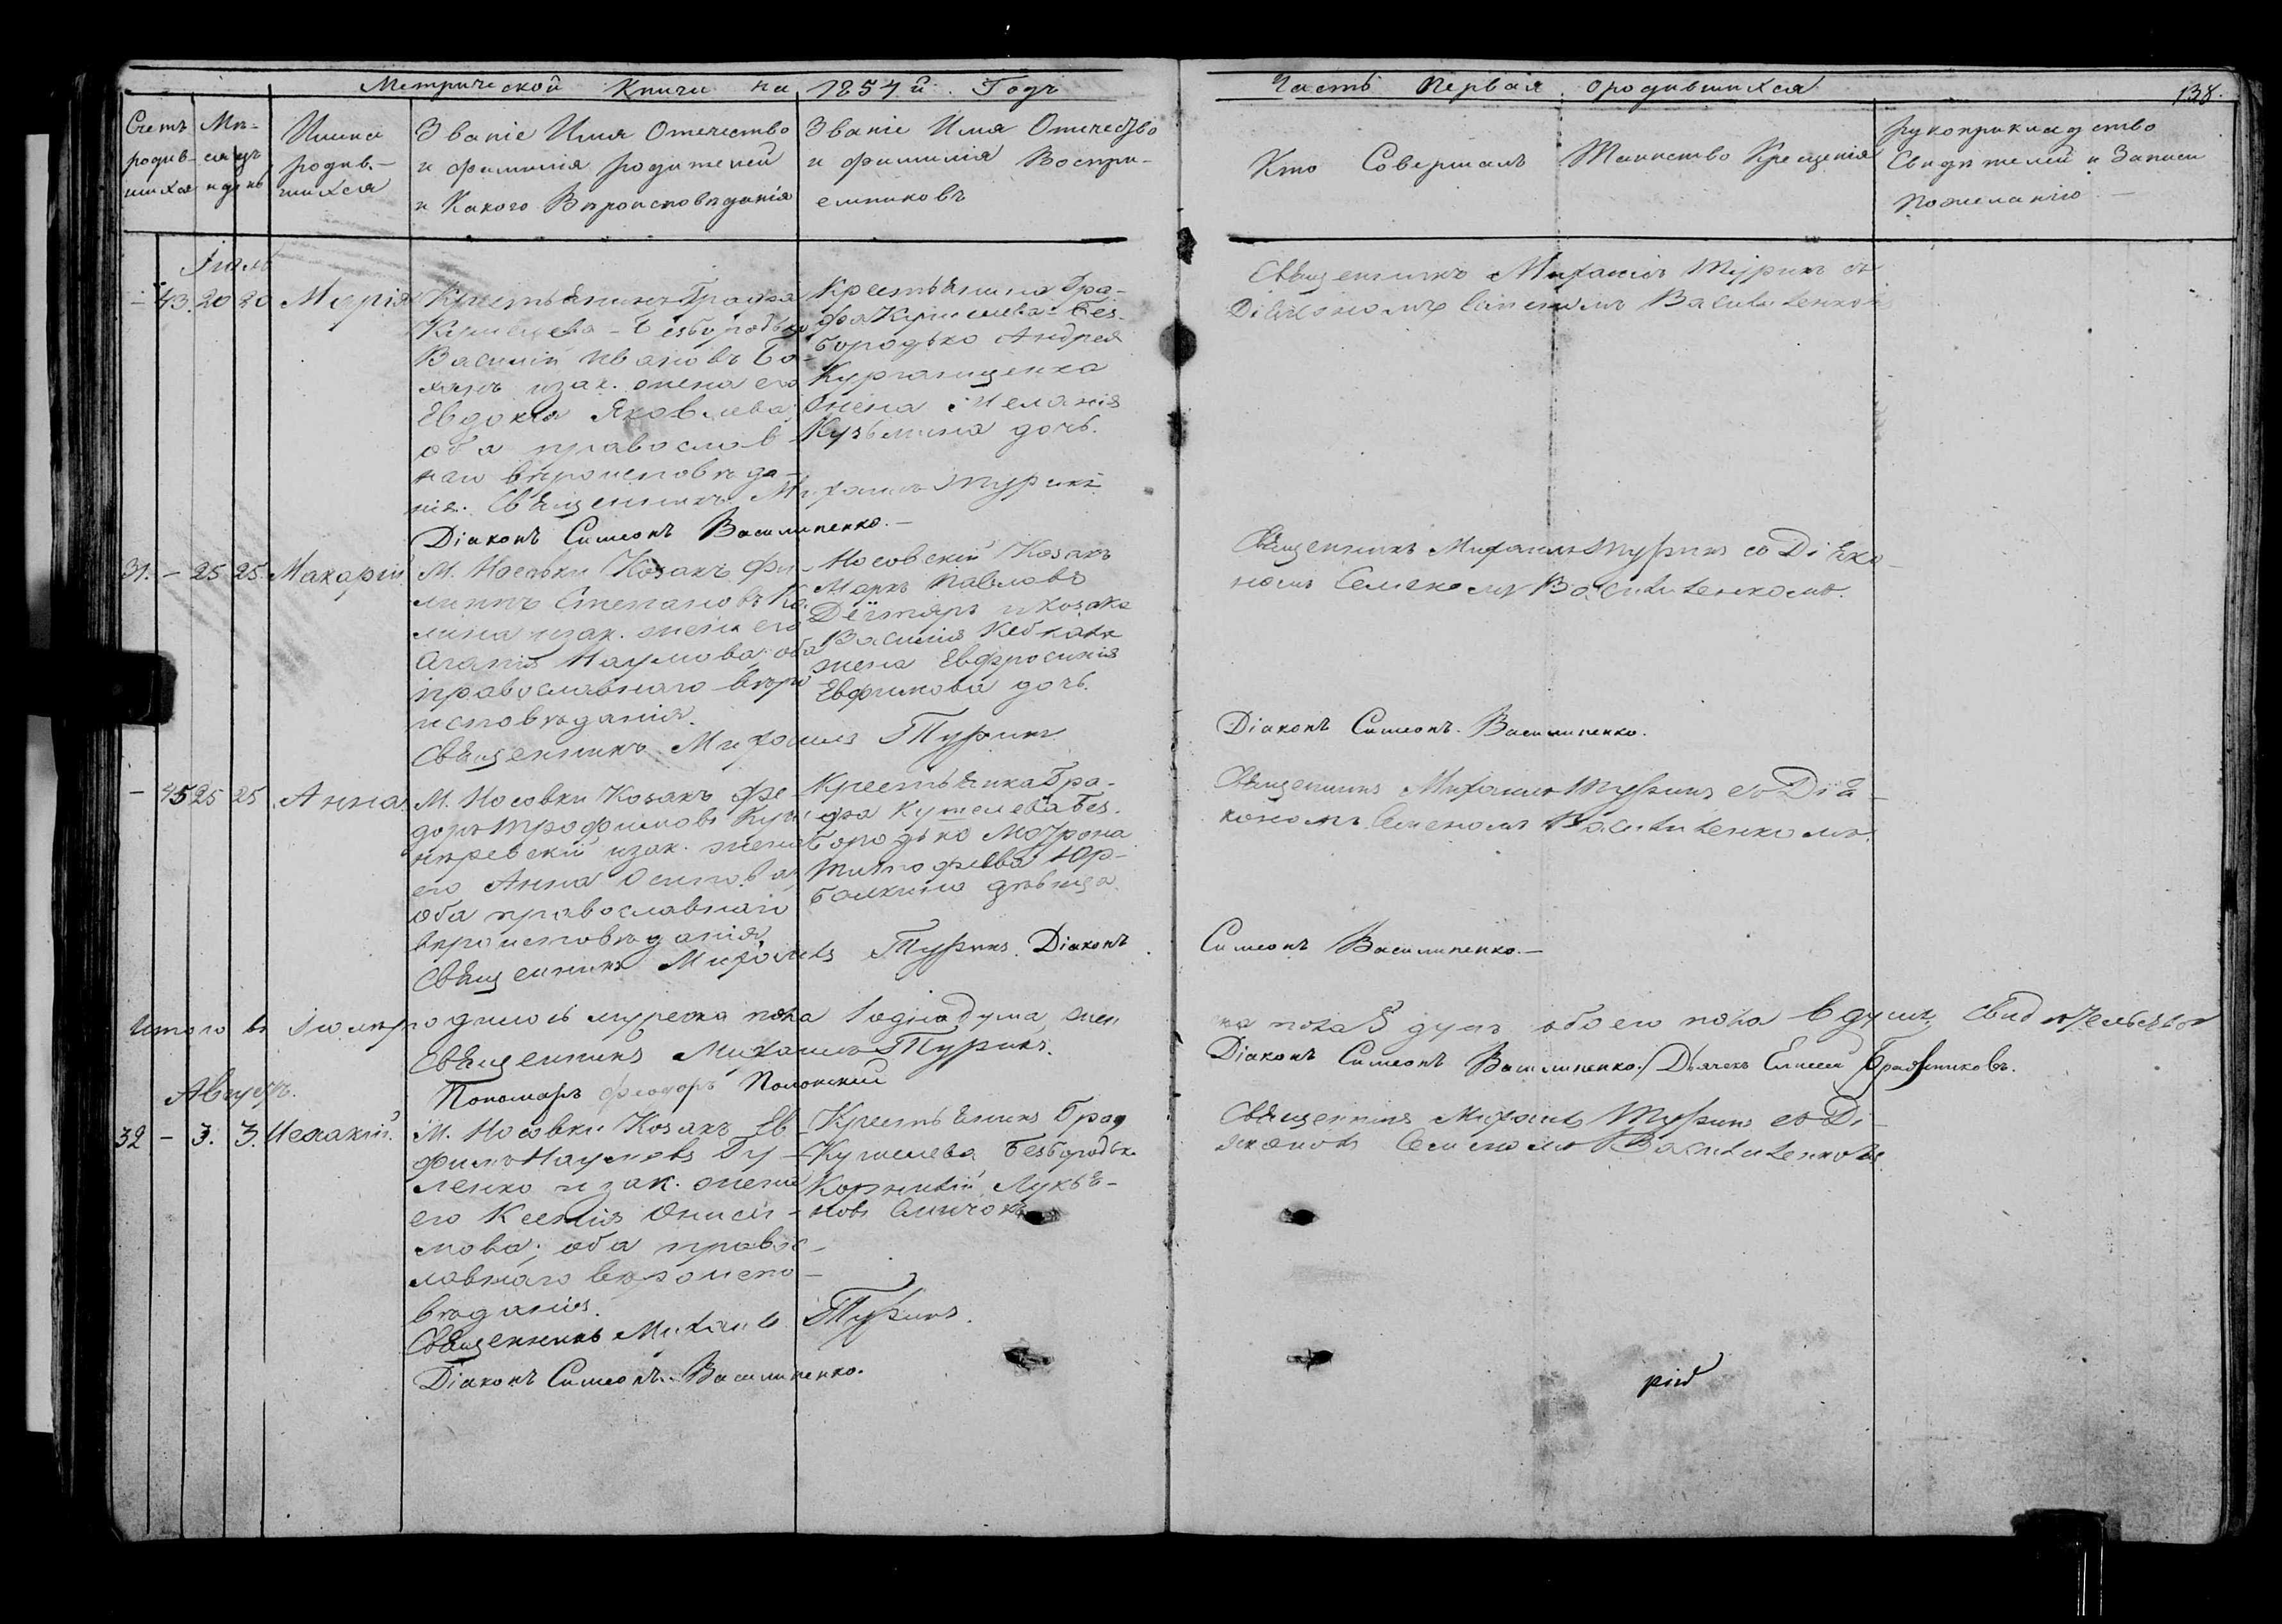 Метрической Книги на 1854й Годъ
Часть Первая о родившихся
138.
Счетъ родив-шихся
Мѣ-сяцъ и день
Имена
родив-
шихся
Званіе Имя Отечество
и фамилія родителей
и Какого Вѣроисповѣданія
Званіе Имя Отечество
и фамилія Воспрі-
емниковъ
Кто Совершалъ Таинство Крещенія
Рукоприкладство
Свидѣтелей и Записи
По желанію
Іюль
– 43. 20 20 Марія
Крестьянинъ Графа
Кушелева-Безбородька
Василій Ивановъ Бо-
изак. жена его
Евдокія Яковлева
оба православ-
наго вѣроисповѣда-
нія. Священникъ Михаилъ Туринъ
Діаконъ Симеонъ Василипенко.–
Крестьянина Гра-
фа Кушелева-Без-
бородько Андрея
жена Меланія
Кузьмина дочь.
Священникъ Михаилъ Туринъ съ
Діакономъ
31. – 25 25. Макарій
М. Носовки Козакъ Фи-
липпъ Степановъ
изак. жена его
Агапія Наумова; оба
православнаго вѣро
исповѣданія.
Священникъ Михаилъ Туринъ
Носовскій Козакъ
Маркъ Павловъ
Дегтяръ и козака
Василія
жена Евфросинія
Евфимова дочь.
Священникъ Михаилъ Туринъ со Діяко-
номъ
Діаконъ Симеонъ. Василипенко.
– 45 25 25 Анна
М. Носовки Козакъ Фе-
доръ Трофимовъ
изак. жена
его Анна Осипова,
оба православнаго
вѣроисповѣданія,
Священникъ Михаилъ Туринъ. Діаконъ
Крестьянка Гра-
фа Кушелева Без-
бородько
Тимофеева
дѣвица.
Священникъ Михаилъ Туринъ съ Діа-
кономъ
Симеонъ Василипенко.–
Итого въ Іюлѣ родилось мужеска пола 1 одна душа, жен
ска пола 5 душъ обоего пола 6 душъ,
Священникъ Михаилъ Туринъ.
Діаконъ Симеонъ Василипенко. Дьячекъ Елисей
Пономарь Феодоръ Полонскій
Августъ.
32 – 3. 3. Исаакій.
М. Носовки Козакъ Ев-
фимъ Наумовъ Гу-
ленко и зак. жена
его Ксенія Ониси-
мова; оба правос-
лавнаго вѣроиспо-
вѣданія.
Священникъ Михаилъ Туринъ.
Діаконъ Симеонъ Василипенко.
Крестьянинъ Граф
Кушелева Безбородьк
Корнилій Лукья-
новъ
Священникъ Михаилъ Туринъ съ Ді-